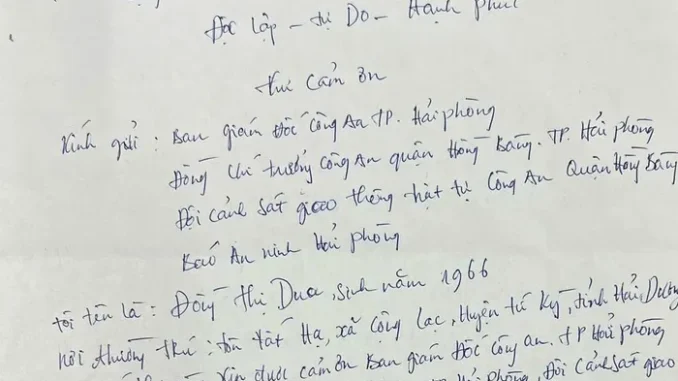 Độc lập - tự Do - Hạnh phúc
thư cảm ơn
Kính gửi : Ban giám đốc Công An TP. Hải phòng
Đồng chí trưởng công An quận Hồng Bàng. TP. Hải phòng
Đội cảnh sát giao thông trật tự Công An Quận Hồng Bàng
Báo An ninh Hải phòng
tôi tên là : Đồng thị Dua, sinh năm 1966
nơi thường trú : tôn tất Hạ, xã cộng Lạc, Huyện tứ kỳ, tỉnh Hải Dương
Xin được cảm ơn Ban giám đốc công an. TP Hải phòng
phòng, Đội cảnh sát giao